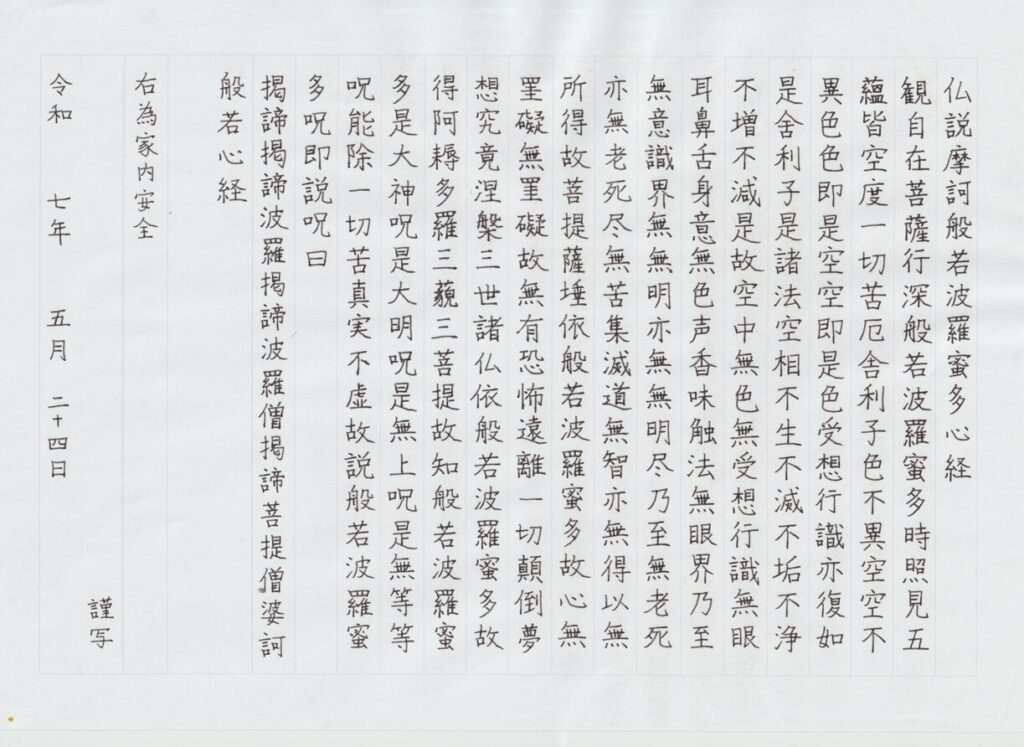 仏説摩訶般若波羅蜜多心経
観自在菩薩行深般若波羅蜜多時照見五
蘊皆空度一切苦厄舎利子色不異空空不
異色色即是空空即是色受想行識亦復如
是舎利子是諸法空相不生不滅不垢不浄
不増不減是故空中無色無受想行識無眼
耳鼻舌身意無色声香味触法無眼界乃至
無意識界無無明亦無無明尽乃至無老死
亦無老死尽無苦集滅道無智亦無得以無
所得故菩提薩埵依般若波羅蜜多故心無
罣礙無罣礙故無有恐怖遠離一切顛倒夢
想究竟涅槃三世諸仏依般若波羅蜜多故
得阿耨多羅三藐三菩提故知般若波羅蜜
多是大神呪是大明呪是無上呪是無等等
呪能除一切苦真実不虚故説般若波羅蜜
多呪即説呪曰
掲諦掲諦波羅掲諦波羅僧掲諦菩提僧婆訶
般若心経
右為家内安全
謹写
令和 七年 五月 二十四日